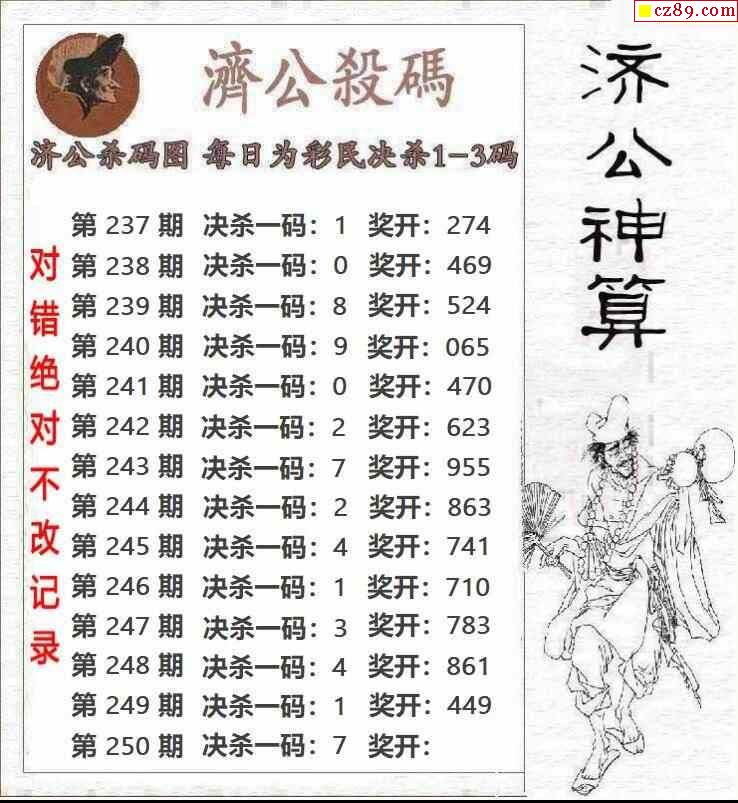 cz89.com
濟公殺碼
济公杀码图 每日为彩民决杀1-3码
第 237 期 决杀一码：1 奖开：274
第 238 期 决杀一码：0 奖开：469
第 239 期 决杀一码：8 奖开：524
第 240 期 决杀一码：9 奖开：065
第 241 期 决杀一码：0 奖开：470
第 242 期 决杀一码：2 奖开：623
第 243 期 决杀一码：7 奖开：955
第 244 期 决杀一码：2 奖开：863
第 245 期 决杀一码：4 奖开：741
第 246 期 决杀一码：1 奖开：710
第 247 期 决杀一码：3 奖开：783
第 248 期 决杀一码：4 奖开：861
第 249 期 决杀一码：1 奖开：449
第 250 期 决杀一码：7 奖开：
对错绝对不改记录
济公神算